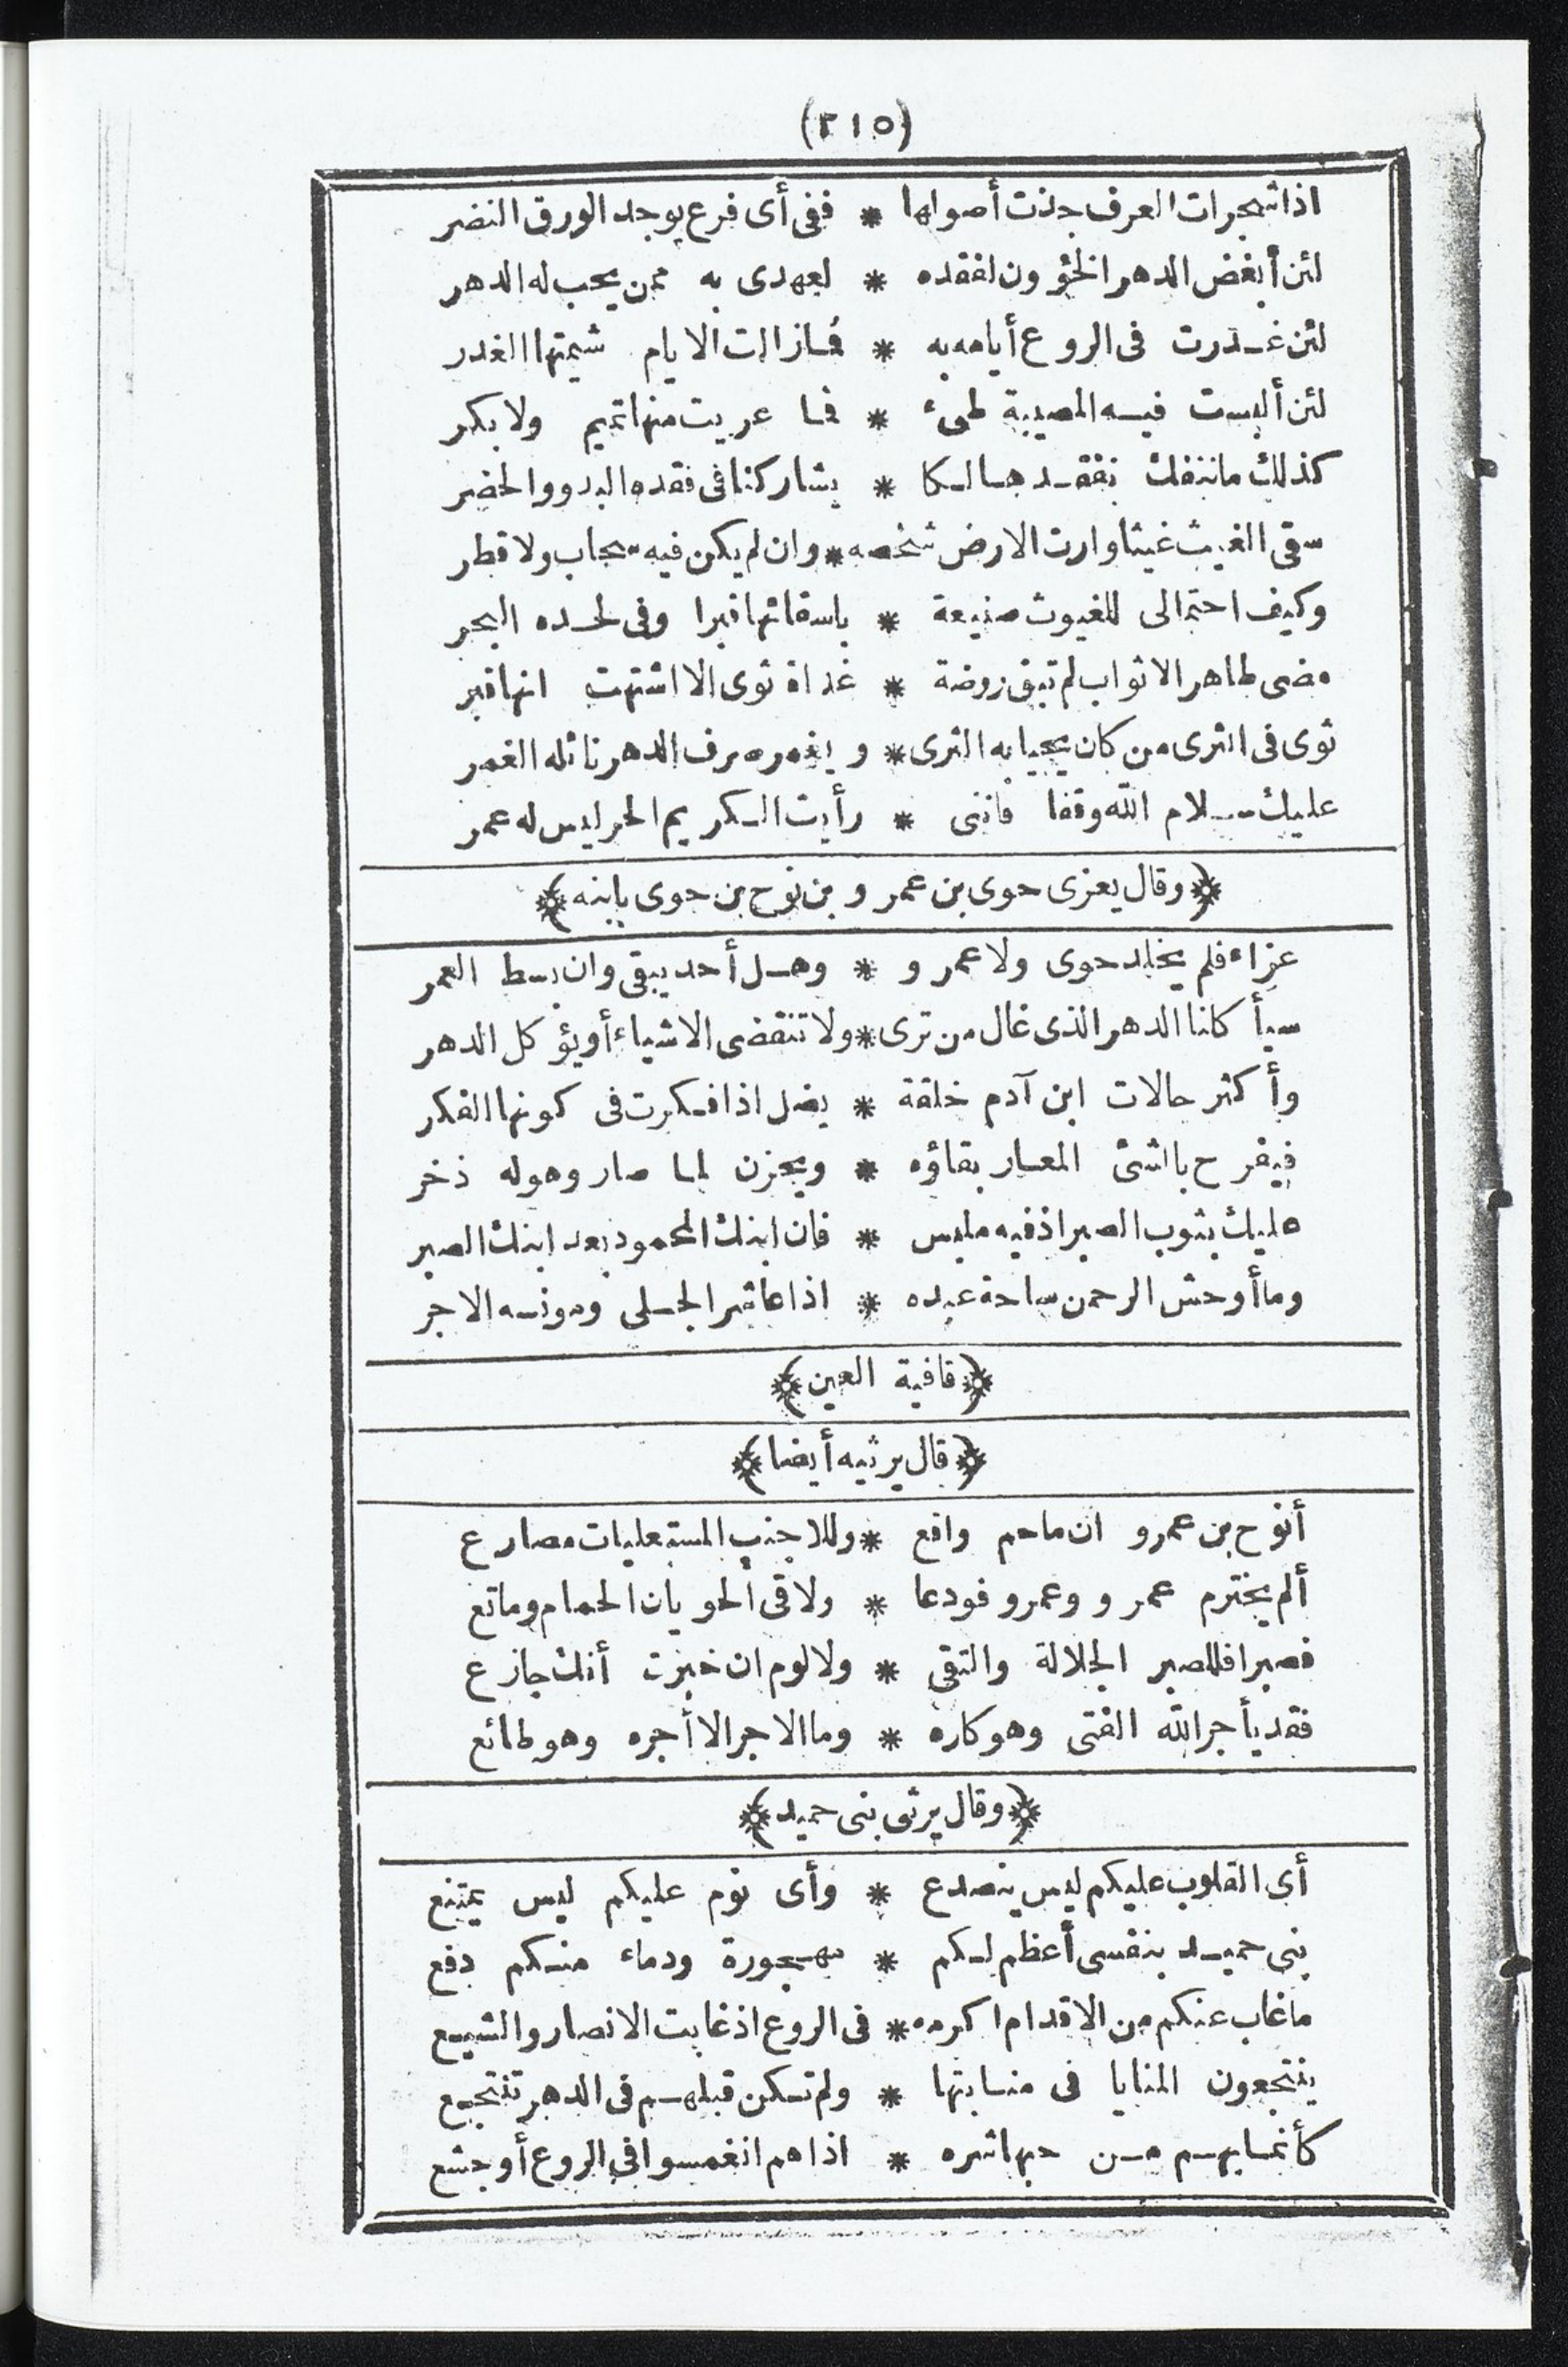 (٣١٥)
اذا شجرات العرف جذت أصولها * ففى أى فرع يوجد الورق النضر
لئن أبغض الدهر الخؤون لفقده * لعهدى به ممن يحب له الدهر
لئن غدرت فى الروع أيامه به * فما زالت الايام شيمتها الغدر
لئن ألبست فيه المصيبة طىء * فما عريت منها تميم ولا بكر
كذلك ما ننفك نفقد هالكا * يشاركنا فى فقده البدو والحضر
سقى الغيث غيثا وارت الارض شخصه * وان لم يكن فيه سحاب ولا قطر
وكيف احتمالى للغيوث صنيعة * باسقائها قبرا وفى لحده البحر
مضى طاهر الاثواب لم تبق روضة * غداة ثوى الا اشتهت انها قبر
ثوى فى الثرى من كان يحيا به الثرى * ويغمر صرف الدهر نائله الغمر
عليك سلام الله وقفا فاننى * رأيت الكريم الحر ليس له عمر
﴿وقال يعزى حوى بن عمرو بن نوح بن حوى بابنه﴾
عزاء فلم يخلد حوى ولا عمرو * وهل أحد يبقى وان بسط العمر
سيأكلنا الدهر الذى غال من ترى * ولا تنقضى الاشياء أو يؤكل الدهر
وأكثر حالات ابن آدم خلقة * يضل اذا فكرت فى كونها الفكر
فيفرح بالشئ المعار بقاؤه * ويحزن لما صار وهو له ذخر
عليك بثوب الصبر اذ فيه ملبس * فان ابنك المحمود بعد ابنك الصبر
وما أوحش الرحمن ساحة عبده * اذا عاشر الجلى ومونسه الاجر
﴿قافية العين﴾
﴿قال يرثيه أيضا﴾
أنوح بن عمرو ان ماحم واقع * وللاجنب المستعليات مصارع
ألم يخترم عمرو وعمرو فودعا * ولاقى الحويان الحمام وماتع
فصبرا فللصبر الجلالة والتقى * ولا لوم ان خبرت أنك جازع
فقد يأجر الله الفتى وهو كاره * وما الاجر الا أجره وهو طائع
﴿وقال يرثى بنى حميد﴾
أى القلوب عليكم ليس ينصدع * وأى نوم عليكم ليس يمتنع
بنى حميد بنفسى أعظم لكم * مهجورة ودماء منكم دفع
ما غاب عنكم من الاقدام اكرمه * فى الروع اذ غابت الانصار والشيع
ينتجعون المنايا فى منابتها * ولم تكن قبلهم فى الدهر تنتجع
كأنما بهم من حبها شره * اذا هم انغمسوا فى الروع أو جشع